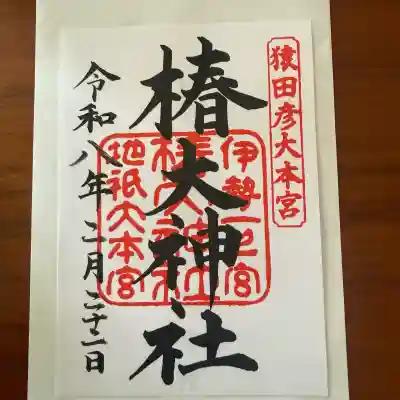 猿田彦大本宮
伊勢一之宮
椿大神社
椿大神社
地祇大本宮
令和八年二月二十二日